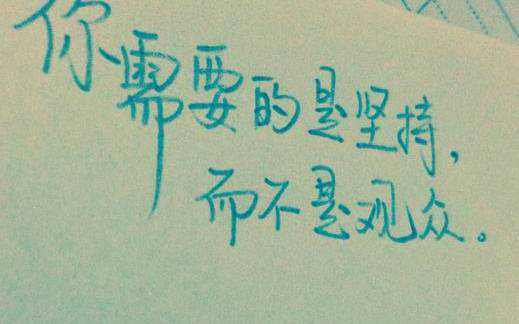 你需要的是坚持，
而不是观众。